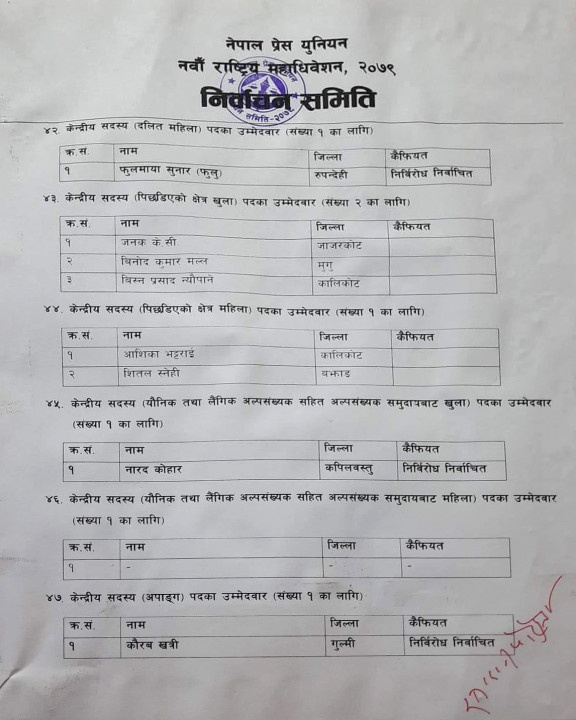 नेपाल प्रेस युनियन
नवौं राष्ट्रिय महाधिवेशन, २०७९
निर्वाचन समिति
समिति-२०७९
४२. केन्द्रीय सदस्य (दलित महिला) पदका उम्मेदवार (संख्या १ का लागि)
क्र.सं. नाम जिल्ला कैफियत
१ फुलमाया सुनार (फुलु) रुपन्देही निर्विरोध निर्वाचित
४३. केन्द्रीय सदस्य (पिछडिएको क्षेत्र खुला) पदका उम्मेदवार (संख्या २ का लागि)
क्र.सं. नाम जिल्ला कैफियत
१ जनक के.सी जाजरकोट
२ बिनोद कुमार मल्ल मुगु
३ बिस्न प्रसाद न्यौपाने कालिकोट
४४. केन्द्रीय सदस्य (पिछडिएको क्षेत्र महिला) पदका उम्मेदवार (संख्या १ का लागि)
क्र.सं. नाम जिल्ला कैफियत
१ आशिका भट्टराई कालिकोट
२ शितल स्नेही बझाङ
४५. केन्द्रीय सदस्य (यौनिक तथा लैंगिक अल्पसंख्यक सहित अल्पसंख्यक समुदायबाट खुला) पदका उम्मेदवार
(संख्या १ का लागि)
क्र.सं. नाम जिल्ला कैफियत
१ नारद कोहार कपिलवस्तु निर्विरोध निर्वाचित
४६. केन्द्रीय सदस्य (यौनिक तथा लैंगिक अल्पसंख्यक सहित अल्पसंख्यक समुदायबाट महिला) पदका उम्मेदवार
(संख्या १ का लागि)
क्र.सं. नाम जिल्ला कैफियत
१ - - -
४७. केन्द्रीय सदस्य (अपाङ्ग) पदका उम्मेदवार (संख्या १ का लागि)
क्र.सं. नाम जिल्ला कैफियत
१ कौरब खत्री गुल्मी निर्विरोध निर्वाचित